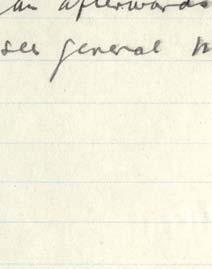 an afterwards
see general